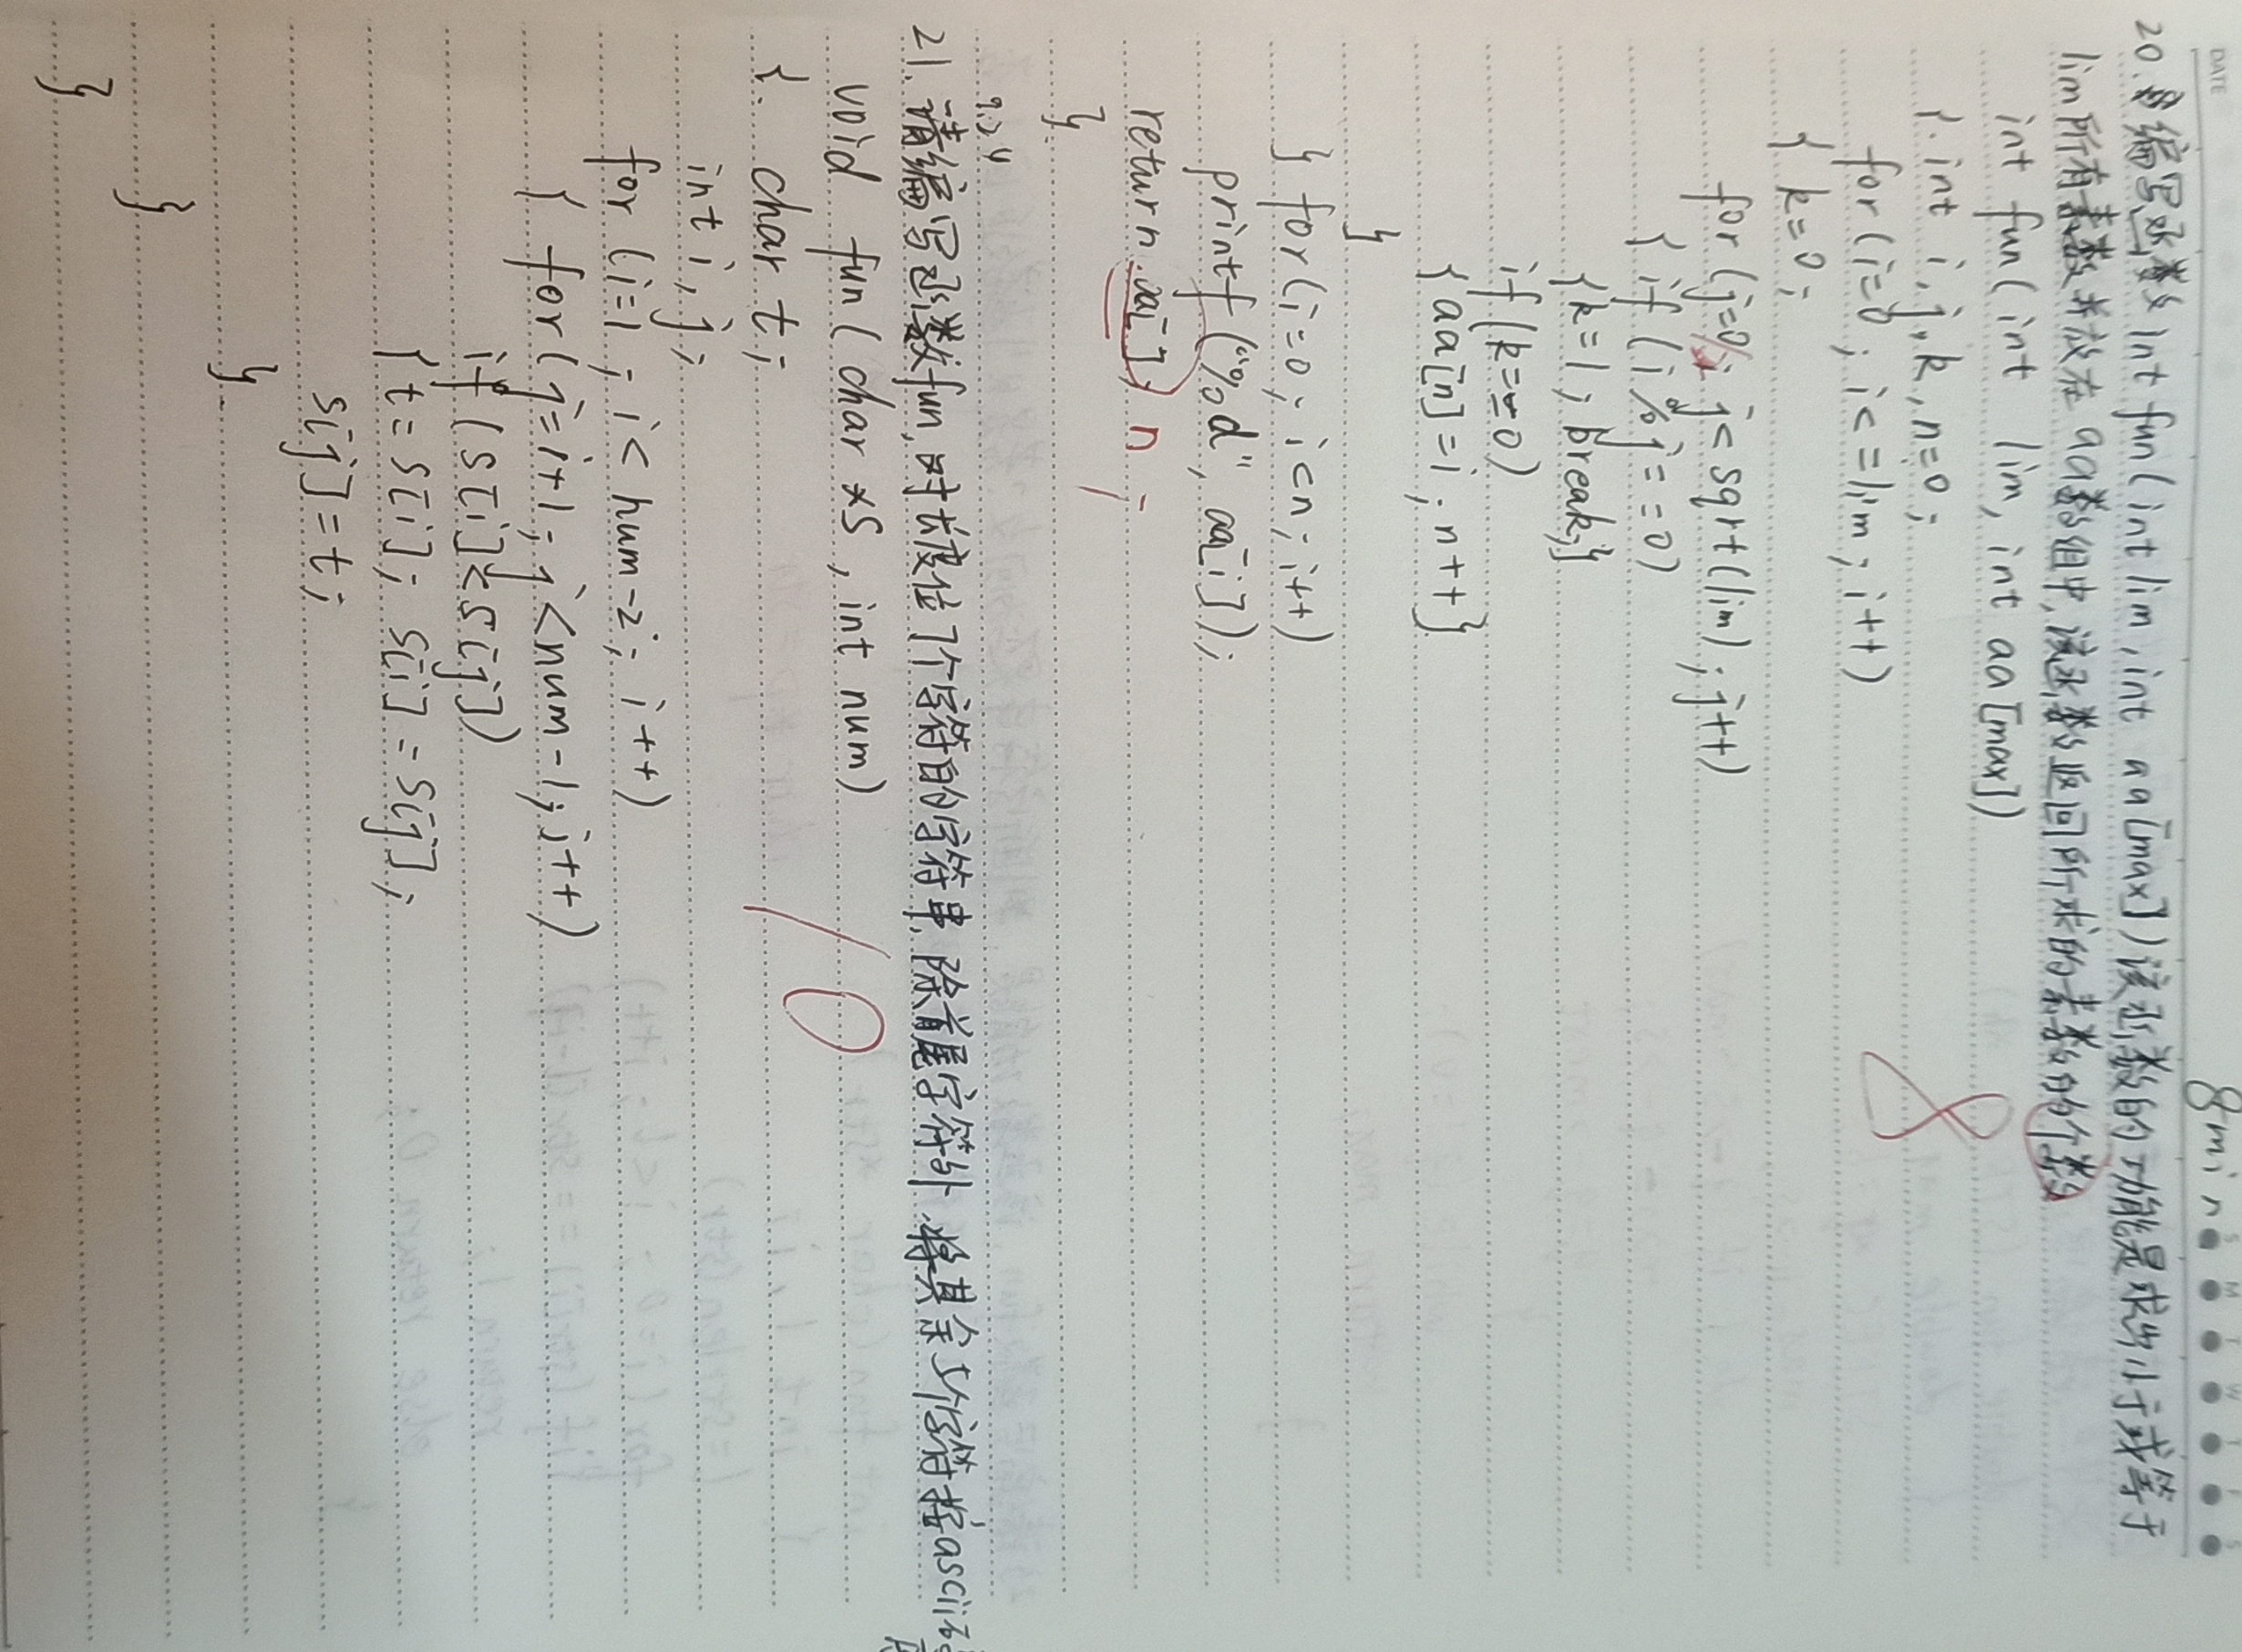 DATE
8min
S M T W T F S
20.编写函数int fun(int lim,int aa[max])该函数的功能是求出小于或等于
lim所有素数并放在aa数组中,该函数返回所求的素数的个数
int fun(int lim, int aa[max])
{ int i,j,k,n=0;
for(i=0; i<=lim; i++)
{ k=0;
for(j=0; j<sqrt(lim); j++)
{ if(i%j==0)
{k=1; break;}
if(k==0)
{aa[n]=i; n++}
}
} for(i=0; i<n; i++)
printf("%d", aa[i]);
return aa[i]; n ;
}
8
21.请编写函数fun,对长度位7个字符的字符串,除首尾字符外,将其余5个字符按ascii码
void fun(char *s, int num)
{ char t;
int i, j;
for(i=1; i<num-2; i++)
{ for(j=i+1; j<num-1; j++)
if(s[i]<s[j])
{t=s[i]; s[i]=s[j];
s[j]=t;
}
}
}
10